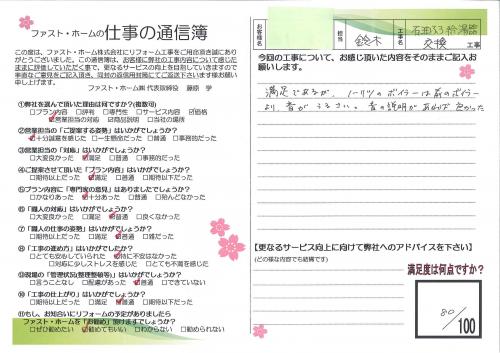 ファスト・ホームの仕事の通信簿
この度は、ファスト・ホーム株式会社にリフォーム工事をご用命頂き誠にあり
がとうございました。この通信簿は、お客様に弊社の工事内容について感じた
ままに評価していただく事で、更なるサービスの向上を目指していきますので
率直なご意見をご記入頂き、同封の返信用封筒にてご返送下さいます様お願い
申し上げます。
ファスト・ホーム㈱ 代表取締役 藤原 学
①弊社を選んで頂いた理由は何ですか?(複数可)
□プラン内容 □評判 □専門性 □サービス内容 □価格
□営業担当の対応 □商品説明 □当社の場所
②営業担当の「ご提案する姿勢」はいかがでしょうか?
□十分誠意を感じた □一生懸命だった □普通 □事務的だった
③営業担当の「対応」はいかがでしょうか?
□大変良かった □満足 □普通 □事務的だった
④ご提案させて頂いた「プラン内容」はいかがでしょうか?
□期待以上だった □満足 □普通 □期待以下だった
⑤プラン内容に「専門家の意見」はありましたでしょうか?
□かなりあった □十分あった □普通 □殆んどなかった
⑥「職人の対応」はいかがでしょうか?
□大変良かった □満足 □普通 □良くなかった
⑦「職人の仕事の姿勢」はいかがでしょうか?
□期待以上だった □満足 □普通 □雑だった
⑧「工事の進め方」はいかがでしたか?
□とても安心していられた □特に不安はなかった
□対応に少しストレスを感じた □とても不満を感じた
⑨現場の「管理状況(整理整頓等)」はいかがでしょうか?
□言うことなし □配慮があった □普通 □できていない
⑩「工事の仕上がり」はいかがでしょうか?
□期待以上だった □満足 □普通 □期待以下だった
⑪もし、お知合いにリフォームの予定がありましたら
ファスト・ホームを「お勧め」頂けますでしょうか?
□ぜひ勧めたい □勧めてもいい □わからない □勧められない
お客様名
担当
鈴木
工事名
石油ふろ給湯器
交換
工事
今回の工事について、お感じ頂いた内容をそのままご記入お
願いします。
満足であるが、ノーリツのボイラーは前のボイラー
より、音がうるさい。音の説明があれば良かった
【更なるサービス向上に向けて弊社へのアドバイスを下さい】
(どの様な内容でも結構です)
満足度は何点ですか?
80/100